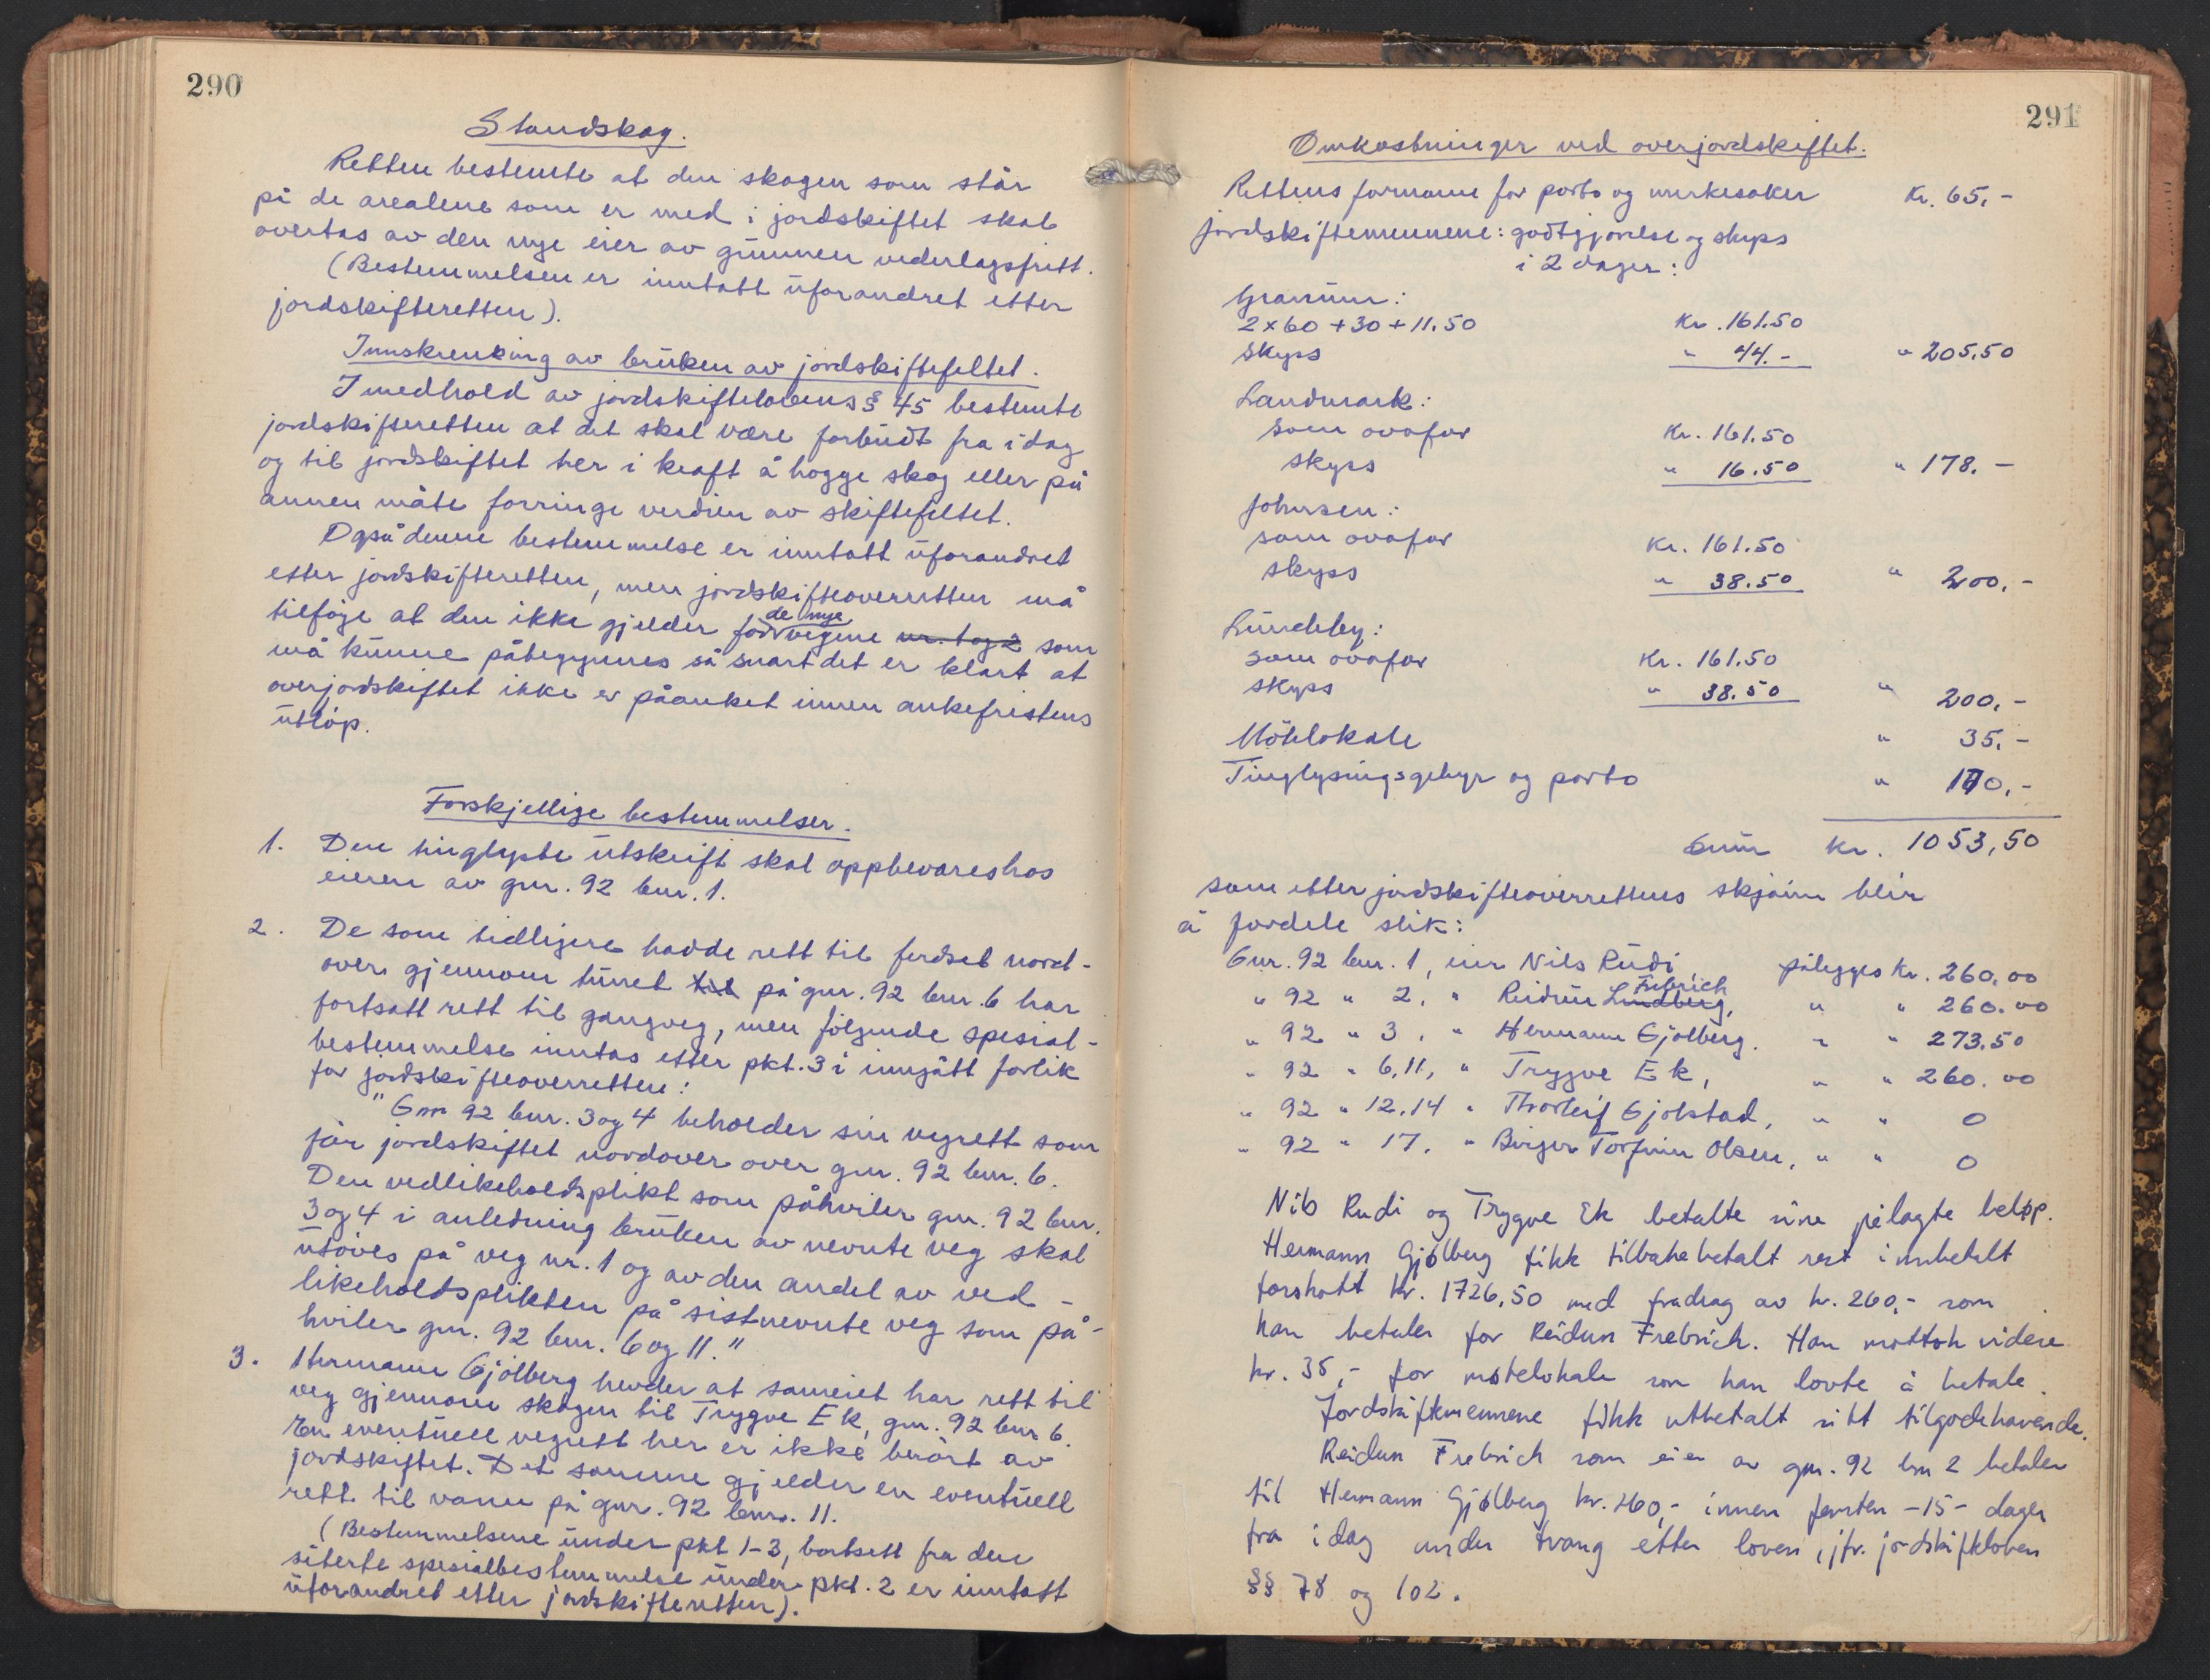 290
Standskog.
Retten bestemte at den skogen som står
på de arealene som er med i jordskiftet skal
overtas av den nye eier av grunnen vederlagsfritt.
(Bestemmelsen er inntatt uforandret etter
jordskifteretten).
Innskrenking av bruken av jordskiftefeltet.
I medhold av jordskiftelovens § 45 bestemte
jordskifteretten at det skal være forbudt fra idag
og til jordskiftet trer i kraft å hogge skog eller på
annen måte forringe verdien av skiftefeltet.
Også denne bestemmelse er inntatt uforandret
etter jordskifteretten, men jordskifteoverretten må
tilføje at den ikke gjelder for de nye vegene nr. 1 og 2 som
må kunne påbegynnes så snart det er klart at
overjordskiftet ikke er påanket innen ankefristens
utløp.
Forskjellige bestemmelser.
1. Den tinglyste utskrift skal oppbevares hos
eieren av gnr. 92 bnr. 1.
2. De som tidligere hadde rett til ferdsel nord-
over gjennom tunet til på gnr. 92 bnr. 6 har
fortsatt rett til gangveg, men følgende spesial-
bestemmelse inntas etter pkt. 3 i inngått forlik
for jordskifteoverretten:
"Gnr 92 bnr. 3 og 4 beholder sin vegrett som
før jordskiftet nordover over gnr. 92 bnr. 6.
Den vedlikeholdsplikt som påhviler gnr. 92 bnr.
3 og 4 i anledning bruken av nevnte veg skal
utøves på veg nr. 1 og av den andel av ved-
likeholdsplikten på sistnevnte veg som på-
hviler gnr. 92 bnr. 6 og 11."
3. Hermann Gjølberg hevder at sameiet har rett til
veg gjennom skogen til Trygve Ek, gnr. 92 bnr 6.
En eventuell vegrett her er ikke berørt av
jordskiftet. Det samme gjelder en eventuell
rett til vann på gnr. 92 bnr. 11.
(Bestemmelsene under pkt 1-3, bortsett fra den
siterte spesialbestemmelse under pkt. 2 er inntatt
uforandret etter jordskifteretten).
291
Omkostninger ved overjordskiftet.
Rettens formann for porto og merkesaker Kr. 65,-
jordskiftemennene: godtgjørelse og skyss
i 2 dager:
Granum:
2 x 60 + 30 + 11.50 Kr. 161.50
Skyss " 44.- " 205,50
Landmark:
som ovafor Kr. 161.50
skyss " 16.50 " 178.-
Johnsen:
som ovafor Kr. 161.50
skyss " 38.50 " 200,-
Lundeby:
som ovafor Kr. 161.50
skyss " 38.50 " 200,-
Møtelokale " 35,-
Tinglysingsgebyr og porto " 170,-
Sum kr. 1053,50
som etter jordskifteoverrettens skjønn blir
å fordele slik:
Gnr. 92 bnr. 1, eier Nils Rudi, pålegges Kr. 260,00
" 92 " 2, " Reidun Lindberg, Frebrich " " 260.00
" 92 " 3, " Hermann Gjølberg. " " 273.50
" 92 " 6,11, " Trygve Ek, " " 260.00
" 92 " 12,14 " Thorleif Gjølstad, " " 0
" 92 " 17, " Birger Torfinn Olsen, " " 0
Nils Rudi og Trygve Ek betalte sine pålagte beløp.
Hermann Gjølberg fikk tilbakebetalt rest innbetalt
forskott kr. 1726,50 med fradrag av kr. 260,- som
han betaler for Reidun Frebrich. Han mottok videre
kr. 35,- for møtelokale som han lovte å betale.
Jordskiftemennene fikk utbetalt sitt tilgodehavende.
Reidun Frebrich som eier av gnr. 92 bnr 2 betaler
til Hermann Gjølberg kr. 260,- innen femten -15- dager
fra idag under tvang etter loven, jfr. jordskifteloven
§§ 78 og 102.